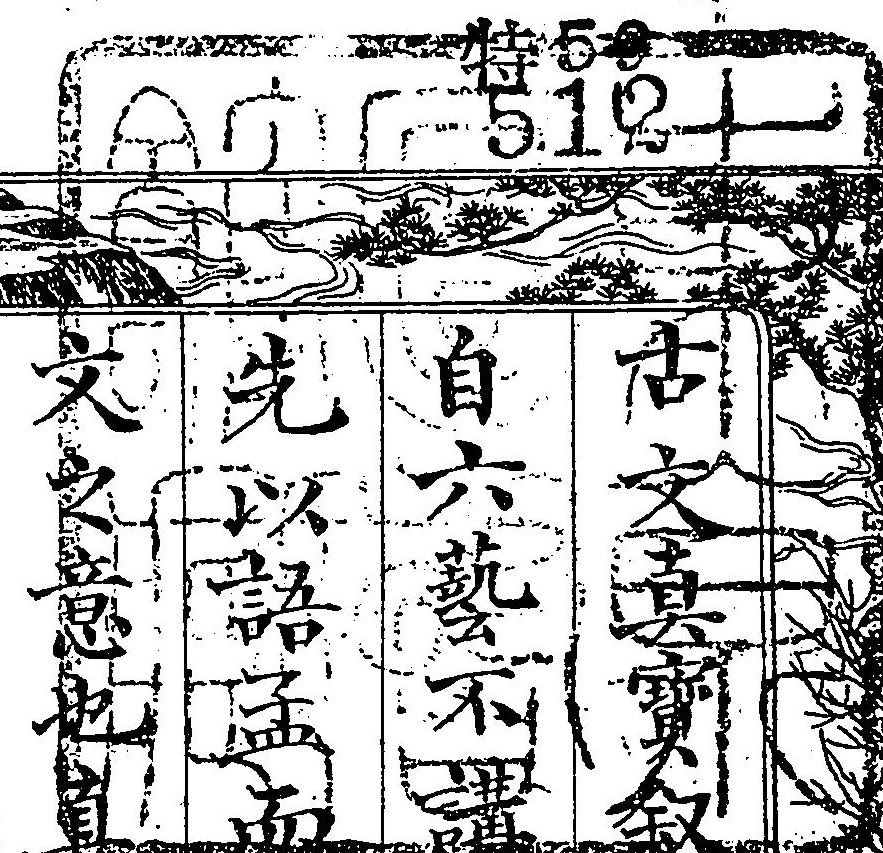 特59
512
古文真寳叙
自六藝不講
先以語孟而
文之意也